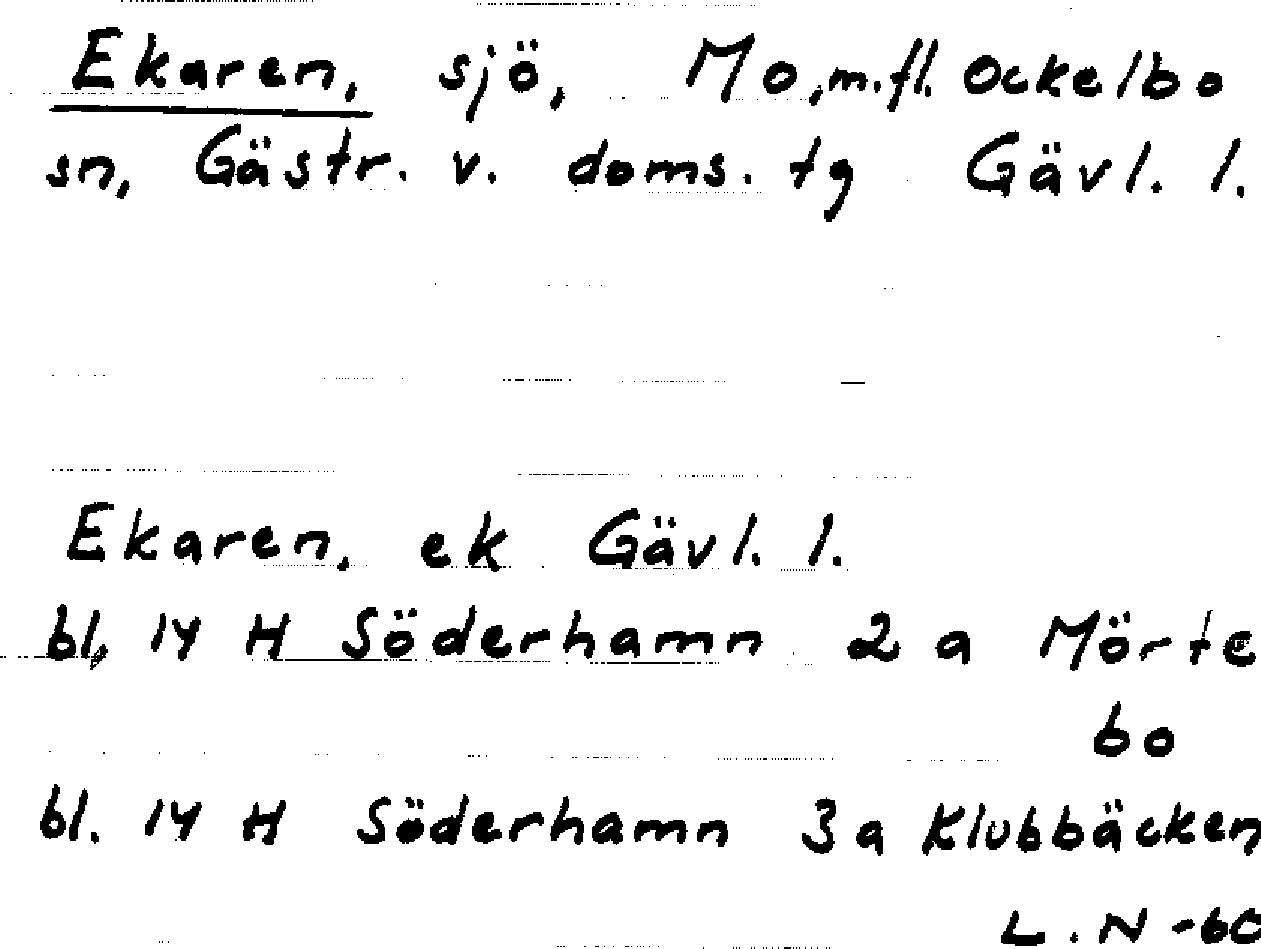 Ekaren, sjö, Mo, m.fl. Ockelbo
sn, Gästr. v. doms. tg Gävl. l.
Ekaren, ek Gävl. l.
bl, 14 H Söderhamn 2 a Mörte
bo
bl. 14 H Söderhamn 3 a Klubbäcken
L.N -60